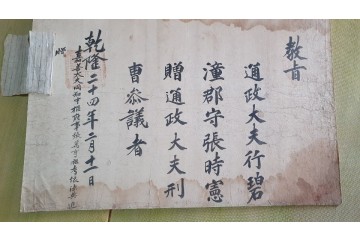 教旨
通政大夫行碧
潼郡守張時憲
贈通政大夫刑
曹叅議者
乾隆二十四年二月十一日